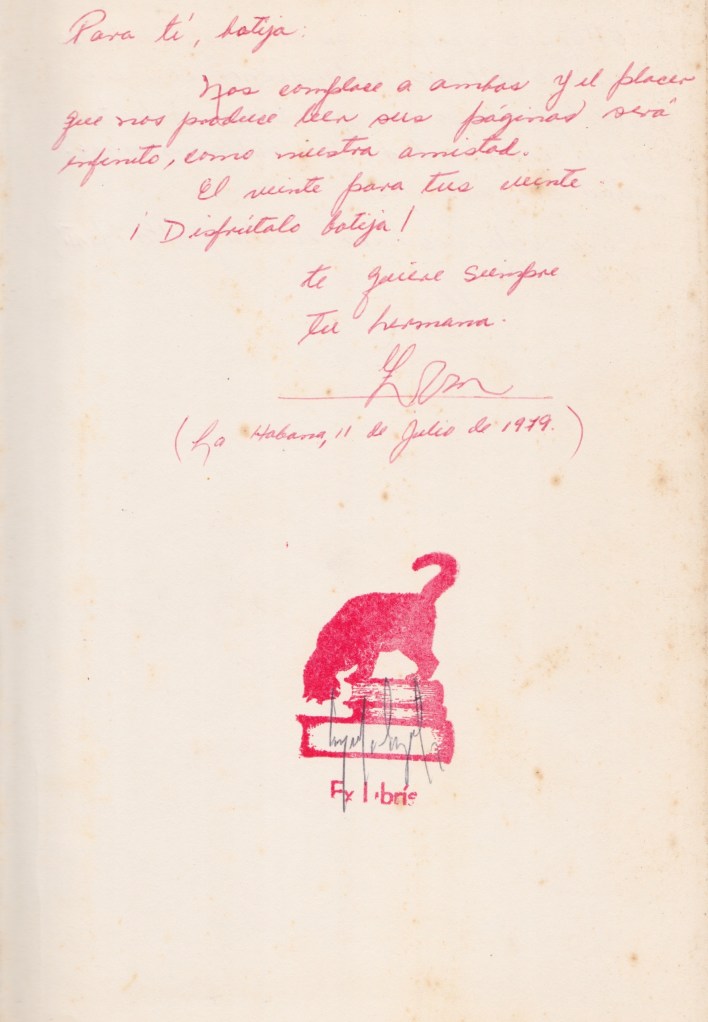 Para tí, botija:
Nos complace a ambas y el placer
que nos produce leer sus páginas será
infinito, como nuestra amistad.
El veinte para tus veinte.
¡Disfrútalo botija!
te quiere siempre
tu hermana.
(La Habana, 11 de Julio de 1979.)
Ex Libris